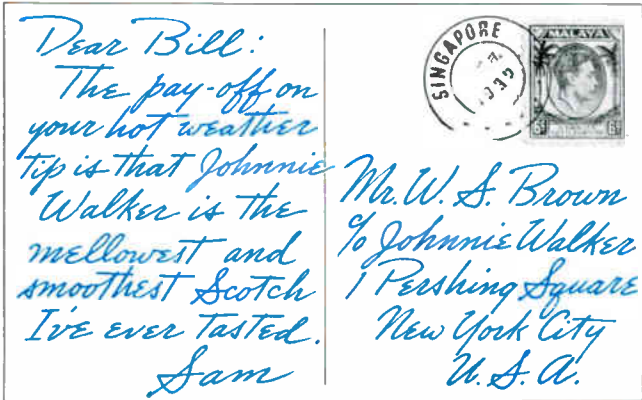 Dear Bill:
The pay-off on
your hot weather
tip is that Johnnie
Walker is the
mellowest and
smoothest Scotch
I've ever tasted.
Sam
SINGAPORE
MALAYA
Mr. W. S. Brown
c/o Johnnie Walker
1 Pershing Square
New York City
U. S. A.